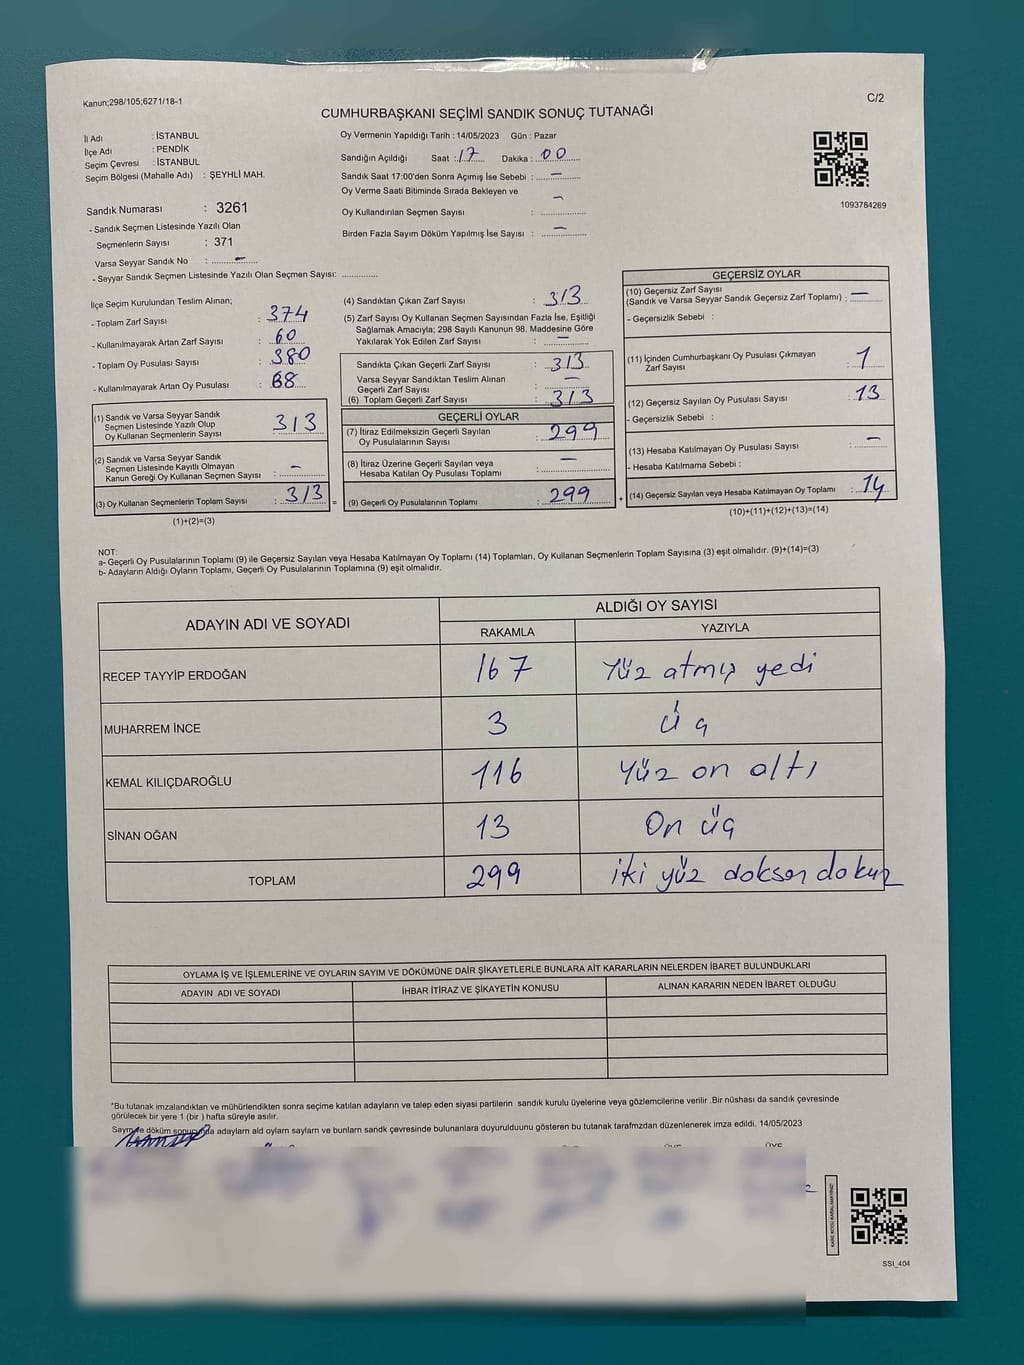 Kanun;298/105;6271/18-1
C/2
CUMHURBAŞKANI SEÇİMİ SANDIK SONUÇ TUTANAĞI
İl Adı : İSTANBUL
İlçe Adı : PENDİK
Seçim Çevresi : İSTANBUL
Seçim Bölgesi (Mahalle Adı) : ŞEYHLİ MAH.
Sandık Numarası : 3261
- Sandık Seçmen Listesinde Yazılı Olan
Seçmenlerin Sayısı : 371
Varsa Seyyar Sandık No : –
- Seyyar Sandık Seçmen Listesinde Yazılı Olan Seçmen Sayısı: ...............
Oy Vermenin Yapıldığı Tarih : 14/05/2023 Gün : Pazar
Sandığın Açıldığı Saat : 17 Dakika : 00
Sandık Saat 17:00'den Sonra Açımış İse Sebebi : –
Oy Verme Saati Bitiminde Sırada Bekleyen ve
Oy Kullandırılan Seçmen Sayısı : –
Birden Fazla Sayım Döküm Yapılmış İse Sayısı : –
1093784269
İlçe Seçim Kurulundan Teslim Alınan;
- Toplam Zarf Sayısı : 374
- Kullanılmayarak Artan Zarf Sayısı : 60
- Toplam Oy Pusulası Sayısı : 380
- Kullanılmayarak Artan Oy Pusulası : 68
(1) Sandık ve Varsa Seyyar Sandık
Seçmen Listesinde Yazılı Olup
Oy Kullanan Seçmenlerin Sayısı : 313
(2) Sandık ve Varsa Seyyar Sandık
Seçmen Listesinde Kayıtlı Olmayan
Kanun Gereği Oy Kullanan Seçmen Sayısı : –
(3) Oy Kullanan Seçmenlerin Toplam Sayısı : 313 =
(1)+(2)=(3)
(4) Sandıktan Çıkan Zarf Sayısı : 313
(5) Zarf Sayısı Oy Kullanan Seçmen Sayısından Fazla İse, Eşitliği
Sağlamak Amacıyla; 298 Sayılı Kanunun 98. Maddesine Göre
Yakılarak Yok Edilen Zarf Sayısı : –
Sandıkta Çıkan Geçerli Zarf Sayısı : 313
Varsa Seyyar Sandıktan Teslim Alınan
Geçerli Zarf Sayısı : –
(6) Toplam Geçerli Zarf Sayısı : 313
GEÇERLİ OYLAR
(7) İtiraz Edilmeksizin Geçerli Sayılan
Oy Pusulalarının Sayısı : 299
(8) İtiraz Üzerine Geçerli Sayılan veya
Hesaba Katılan Oy Pusulası Toplamı : –
(9) Geçerli Oy Pusulalarının Toplamı : 299 +
GEÇERSİZ OYLAR
(10) Geçersiz Zarf Sayısı
(Sandık ve Varsa Seyyar Sandık Geçersiz Zarf Toplamı) : –
- Geçersizlik Sebebi :
(11) İçinden Cumhurbaşkanı Oy Pusulası Çıkmayan
Zarf Sayısı : 1
(12) Geçersiz Sayılan Oy Pusulası Sayısı : 13
- Geçersizlik Sebebi :
(13) Hesaba Katılmayan Oy Pusulası Sayısı : –
- Hesaba Katılmama Sebebi :
(14) Geçersiz Sayılan veya Hesaba Katılmayan Oy Toplamı : 14
(10)+(11)+(12)+(13)=(14)
NOT:
a- Geçerli Oy Pusulalarının Toplamı (9) ile Geçersiz Sayılan veya Hesaba Katılmayan Oy Toplamı (14) Toplamları, Oy Kullanan Seçmenlerin Toplam Sayısına (3) eşit olmalıdır. (9)+(14)=(3)
b- Adayların Aldığı Oyların Toplamı, Geçerli Oy Pusulalarının Toplamına (9) eşit olmalıdır.
ADAYIN ADI VE SOYADI ALDIĞI OY SAYISI
RAKAMLA YAZIYLA
RECEP TAYYİP ERDOĞAN 167 Yüz atmış yedi
MUHARREM İNCE 3 üç
KEMAL KILIÇDAROĞLU 116 Yüz on altı
SİNAN OĞAN 13 On üç
TOPLAM 299 iki yüz doksan dokuz
OYLAMA İŞ VE İŞLEMLERİNE VE OYLARIN SAYIM VE DÖKÜMÜNE DAİR ŞİKAYETLERLE BUNLARA AİT KARARLARIN NELERDEN İBARET BULUNDUKLARI
ADAYIN ADI VE SOYADI İHBAR İTİRAZ VE ŞİKAYETİN KONUSU ALINAN KARARIN NEDEN İBARET OLDUĞU
*Bu tutanak imzalandıktan ve mühürlendikten sonra seçime katılan adayların ve talep eden siyasi partilerin sandık kurulu üyelerine veya gözlemcilerine verilir .Bir nüshası da sandık çevresinde
görülecek bir yere 1 (bir ) hafta süreyle asılır.
Sayım ve döküm sonucunda adayların ald oyların sayların ve bunların sandk çevresinde bulunanlara duyurulduunu gösteren bu tutanak tarafmzdan düzenlenerek imza edildi. 14/05/2023
SSI_404